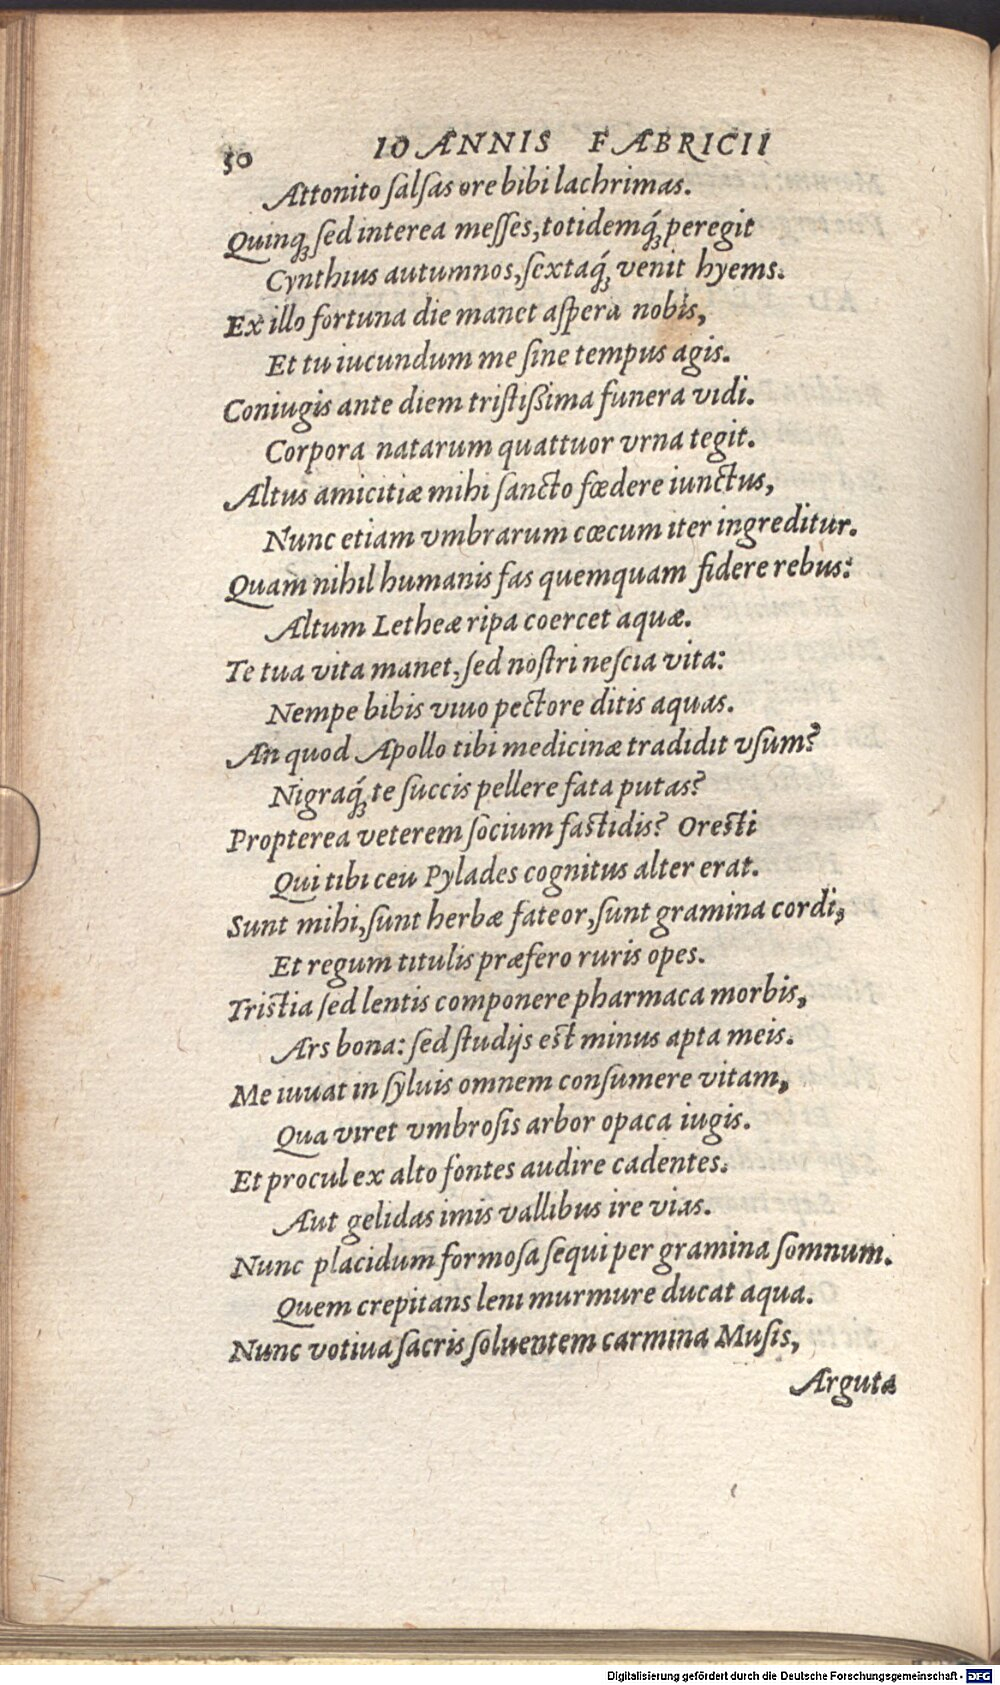 50 IOANNIS FABRICII
Attonito salsas ore bibi lachrimas.
Quinq́; sed interea messes, totidemq́; peregit
Cynthius autumnos, sextaq́; venit hyems.
Ex illo fortuna die manet aspera nobis,
Et tu iucundum me sine tempus agis.
Coniugis ante diem tristißima funera vidi.
Corpora natarum quattuor vrna tegit.
Altus amicitiæ mihi sancto fœdere iunctus,
Nunc etiam vmbrarum cœcum iter ingreditur.
Quam nihil humanis fas quemquam fidere rebus:
Altum Letheæ ripa coercet aquæ.
Te tua vita manet, sed nostri nescia vita:
Nempe bibis viuo pectore ditis aquas.
An quod Apollo tibi medicinæ tradidit vsum?
Nigraq́; te succis pellere fata putas?
Propterea veterem socium fastidis? Oresti
Qui tibi ceu Pylades cognitus alter erat.
Sunt mihi, sunt herbæ fateor, sunt gramina cordi,
Et regum titulis præfero ruris opes.
Tristia sed lentis componere pharmaca morbis,
Ars bona: sed studijs est minus apta meis.
Me iuuat in syluis omnem consumere vitam,
Qua viret vmbrosis arbor opaca iugis.
Et procul ex alto fontes audire cadentes.
Aut gelidas imis vallibus ire vias.
Nunc placidum formosa sequi per gramina somnum.
Quem crepitans leni murmure ducat aqua.
Nunc votiua sacris soluentem carmina Musis,
Argutæ
Digitalisierung gefördert durch die Deutsche Forschungsgemeinschaft - DFG